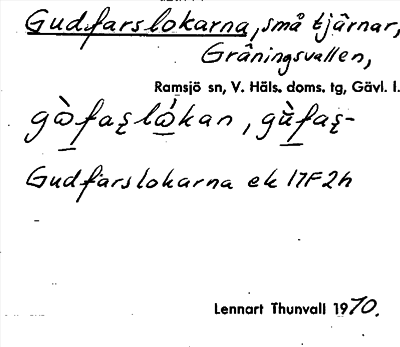 Gudfarslokarna, små tjärnar,
Gråningsvallen,
Ramsjö sn, V. Häls. doms. tg, Gävl. l.
Gudfarslokarna ek 17F2h
Lennart Thunvall 1970.